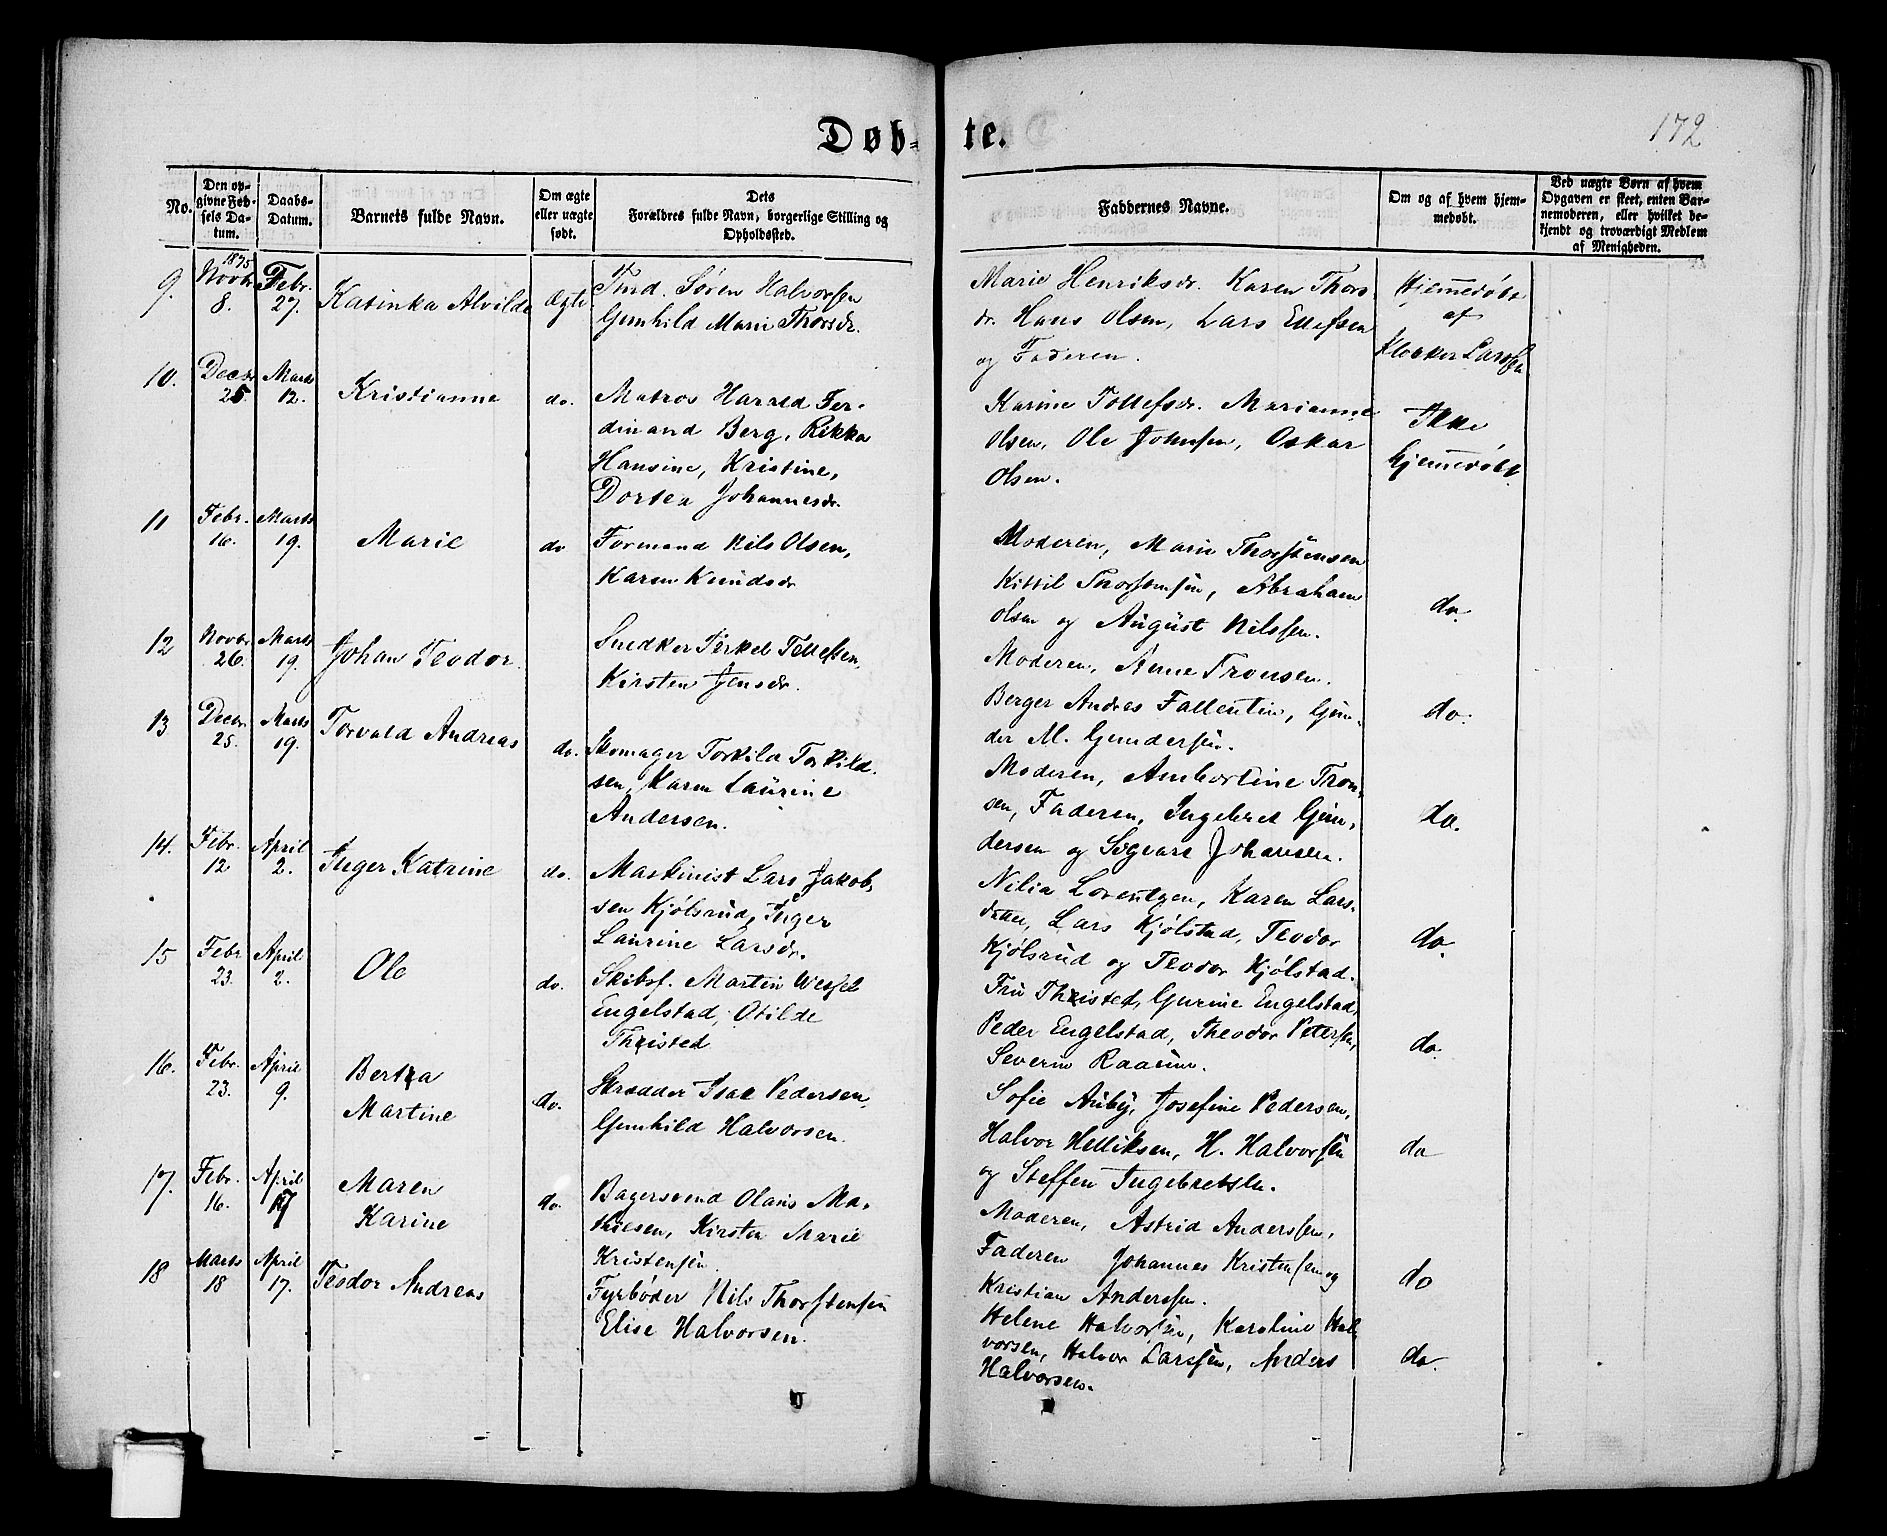 Døb-te.
172
No.
Den op-
givne Føb-
sels Da-
tum.
Daabs-
Datum.
Barnets fulde Navn.
Om ægte
eller uægte
født.
Dets
Forældres fulde Navn, borgerlige Stilling og
Opholdssted.
Faddernes Navne.
Om og af hvem hjem-
medøbt.
Ved uægte Børn af hvem
Opgaven er skeet, enten Bar-
nemoderen, eller hvilket be-
kjendt og troværdigt Medlem
af Menigheden.
9.
1875
Novbr
8.
Febr.
27.
Katinka Alvilde
Ægte
Søren Halvorsen
Gunhild Marie Thorsdr.
Marie Henriksdr. Karen Thors-
dr. Hans Olsen, Lars Ellefsen
og Faderen.
Hjemmedøbt
af
Klokker Larssen
10.
Decbr
25.
Marts
12.
Kristianne
do.
Matros Harald Fer-
dinand Berg, Rikka
Hansine, Kristine,
Dortea Johannesdr.
Karine Tollefsdr. Marianne
Olsen, Ole Johnsen, Oskar
Olsen.
Ikke
hjemmedøbt
11
Febr.
16.
Marts
19.
Marie
do
Formand Nils Olsen,
Karen Knudsdr
Moderen, Marie Thorstensen
Kittil Thorstensen, Abraham
Olsen og August Nilssen.
do.
12
Novbr
26.
Marts
19.
Johan Teodor.
Snedker Terkel Tellefsen,
Kirsten Jensdr.
Moderen, Anne Tronsen.
Berger Andres Fallentin, Gun-
der M. Gundersen.
do.
13
Decbr.
25.
Marts
19.
Torvald Andreas
do.
Skomager Torkild Torkild-
sen, Karen Laurine
Andersen.
Moderen, Ambortine Tron-
sen, Faderen, Ingebret Gun-
dersen og Sigvart Johansen.
do.
14.
Febr.
12
April
2.
Inger Katrine
do.
Maskinist Lars Jakob-
sen Kjølsrud, Inger
Laurine Larsdr.
Nilia Lorentzen, Karen Lars-
datter, Lars Kjølstad, Teodor
Kjølsrud og Teodor Kjølstad.
do.
15
Febr
23.
April
2.
Ole
do.
Skibsf. Martin Wessel
Engelstad, Otilde
Thristed
Fru Thristed, Gurine Engelstad,
Peder Engelstad, Theodor Petersen,
Severin Raarum.
do.
16.
Febr.
23.
April
9.
Berta
Martine
do.
Skrædder Isac Pedersen,
Gunhild Halvorsen.
Sofie Auby, Josefine Pedersen,
Halvor Helliksen, H. Halvorsen
og Steffen Ingebretsen.
do
17.
Febr.
16.
April
17
Maren
Karine
do.
Bagersvend Olaus Ma-
thiesen, Kirsten Marie
Kristensen.
Moderen, Astrid Anderssen,
Faderen Johannes Kristensen og
Kristian Anderssen.
do
18
Marts
18
April
17.
Teodor Andreas
Fyrbøder Nils Thorstensen
Elise Halvorsen.
Helene Halvorsen, Karoline Hal-
vorsen, Halvor Larssen, Anders
Halvorsen.
do.